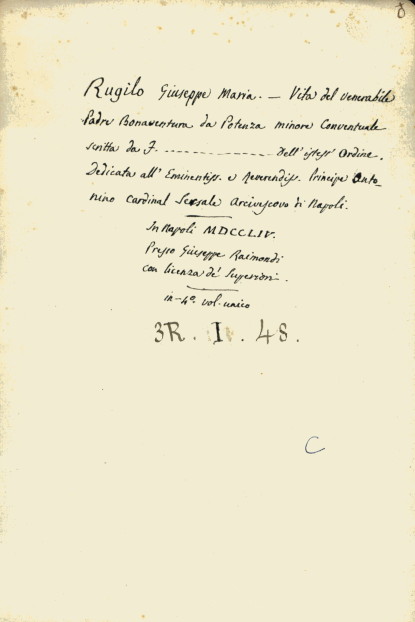 Rugilo Giuseppe Maria. — Vita del venerabile
Padre Bonaventura da Potenza minore Conventuale
scritta da F. -------------------- dell' istess' Ordine.
Dedicata all' Eminentiss. e Reverendiss. Principe Anto-
nino Cardinal Sersale Arcivescovo di Napoli.
In Napoli MDCCLIV.
Presso Giuseppe Raimondi
con licenza de' Superiori.
in-4º. vol. unico
3R. I. 48.
C